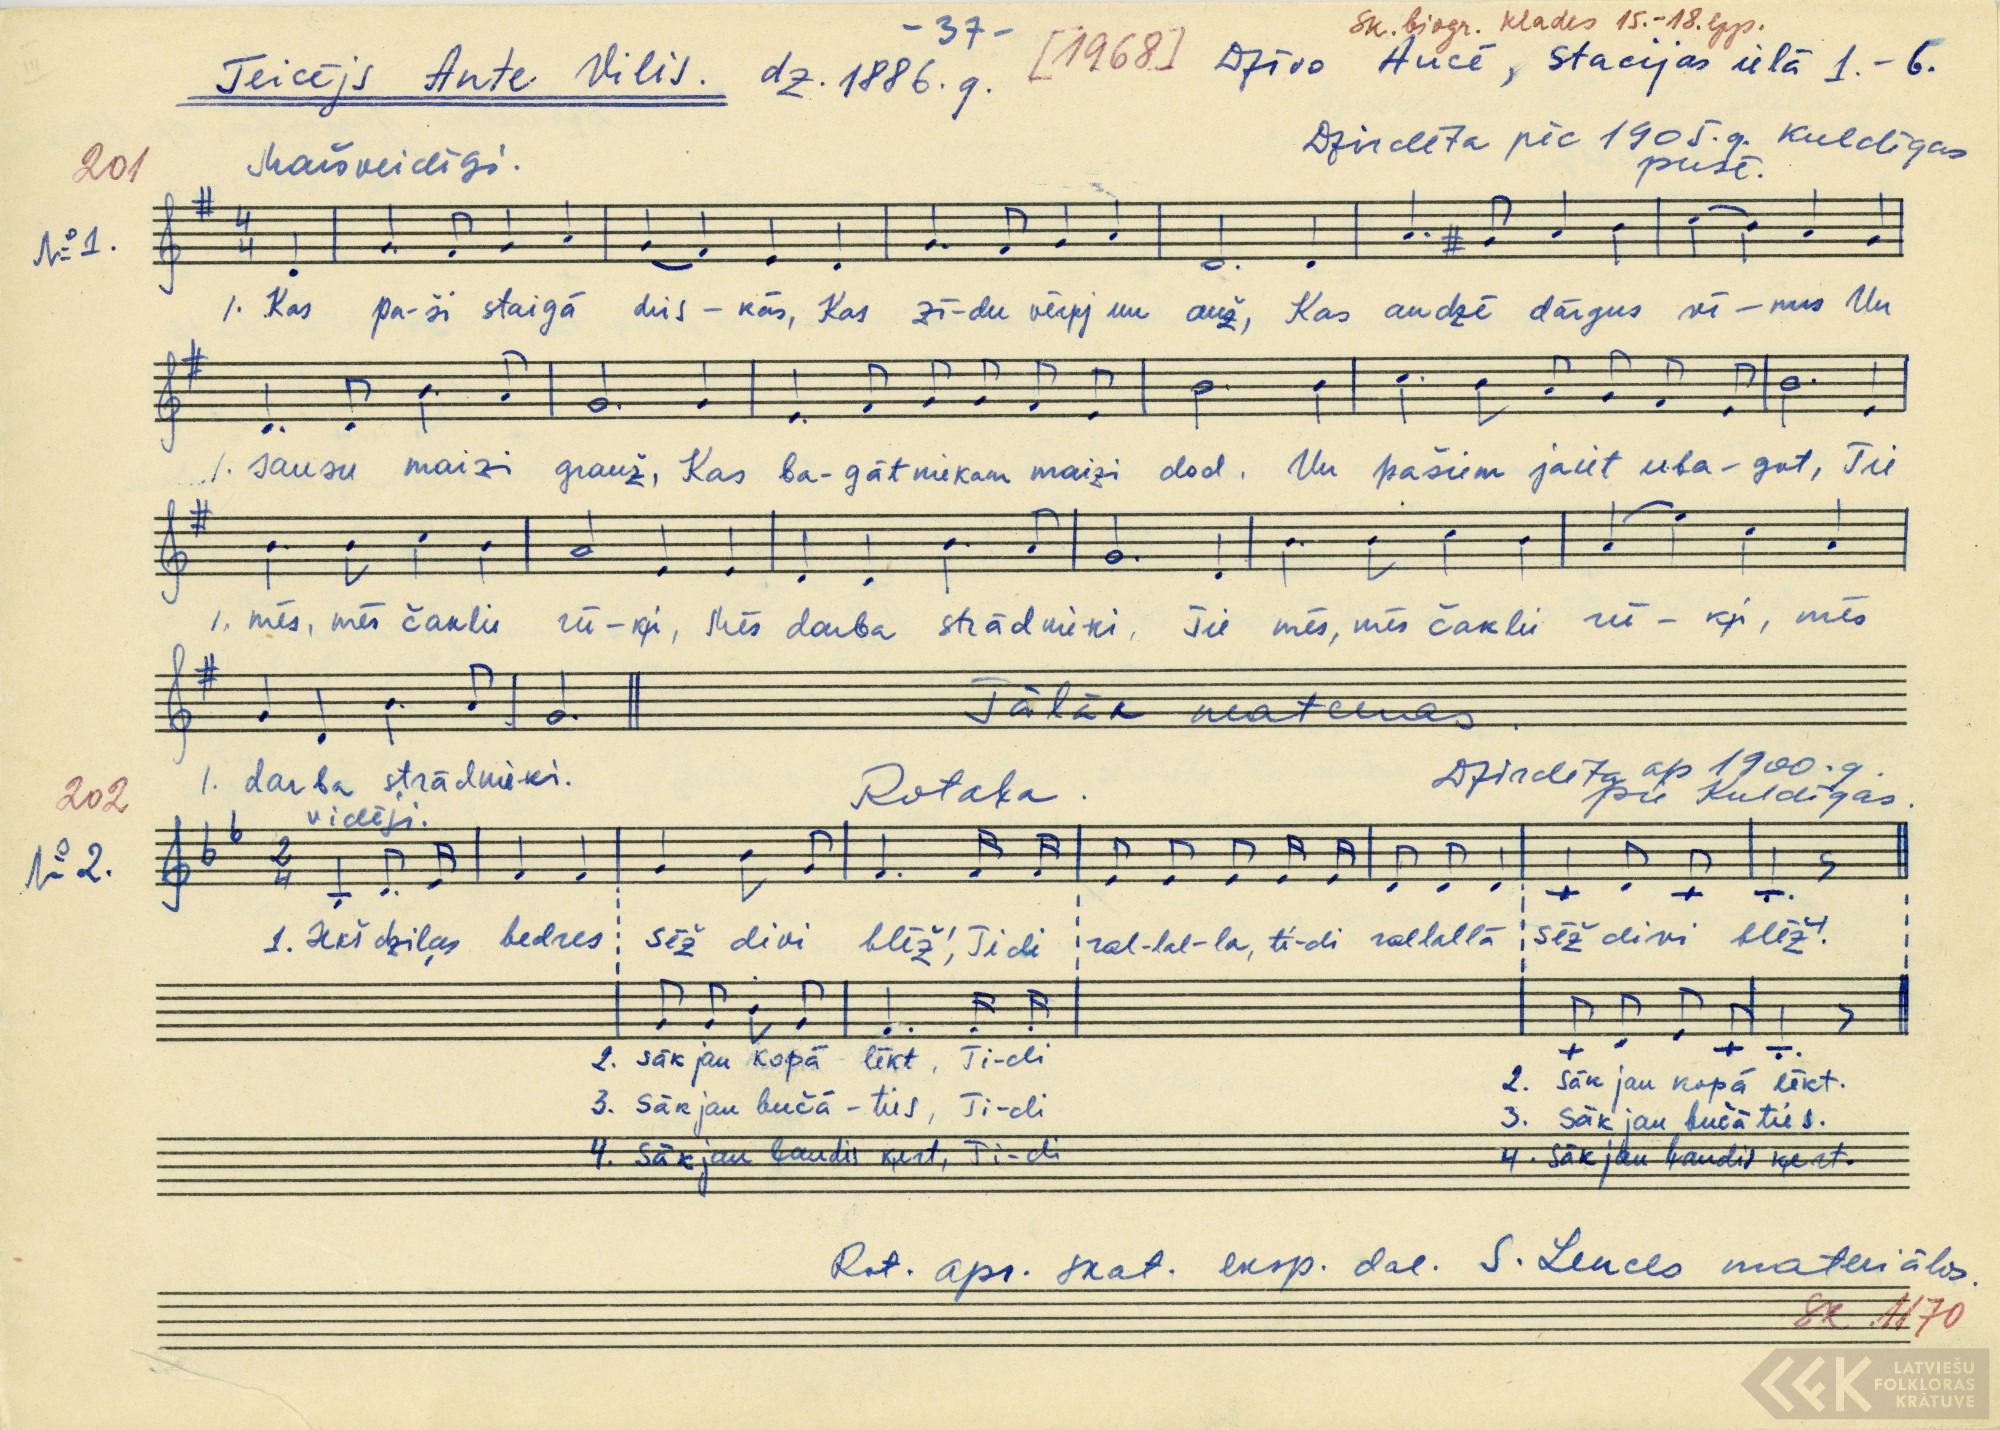 -37-
Sk. biogr. klades 15.-18. lpp.
Teicējs Ante Vilis. dz. 1886. g. [1968] Dzīvo Aucē, Stacijas ielā 1.-6.
Dzirdēta pēc 1905. g. Kuldīgas
pusē.
201 Maršveidīgi.
№1.
4
4
1. Kas pa-ši staigā dris-kās, Kas zī-du vērpj un auž, Kas audzē dārgus vī-nus Un
1. sausu maizi grauž, Kas ba-gātniekam maizi dod. Un pašiem jāiet uba-got, Tie
1. mēs, mēs čaklie rū-ķi, Mēs darba strādnieki, Tie mēs, mēs čaklie rū-ķi, mēs
Tālāk neatceras.
1. darba strādnieki.
202 Rotaļa. Dzirdēta ap 1900. g.
pie Kuldīgas.
vidēji.
№2.
2
4
1. Iekš dziļas bedres sēž divi blēž', Tidi ral-lal-la, ti-di rallallā sēž divi blēž'.
2. sāk jau kopā lēkt, Ti-di
3. Sāk jau bučā-ties, Ti-di
4. Sāk jau baudis ķert, Ti-di
2. Sāk jau kopā lēkt.
3. Sāk jau bučāties.
4. Sāk jau baudis ķert.
Rot. apr. skat. eksp. dal. S. Lences materiālos.
Sk 1170
LATVIEŠU
FOLKLORAS
KRĀTUVE